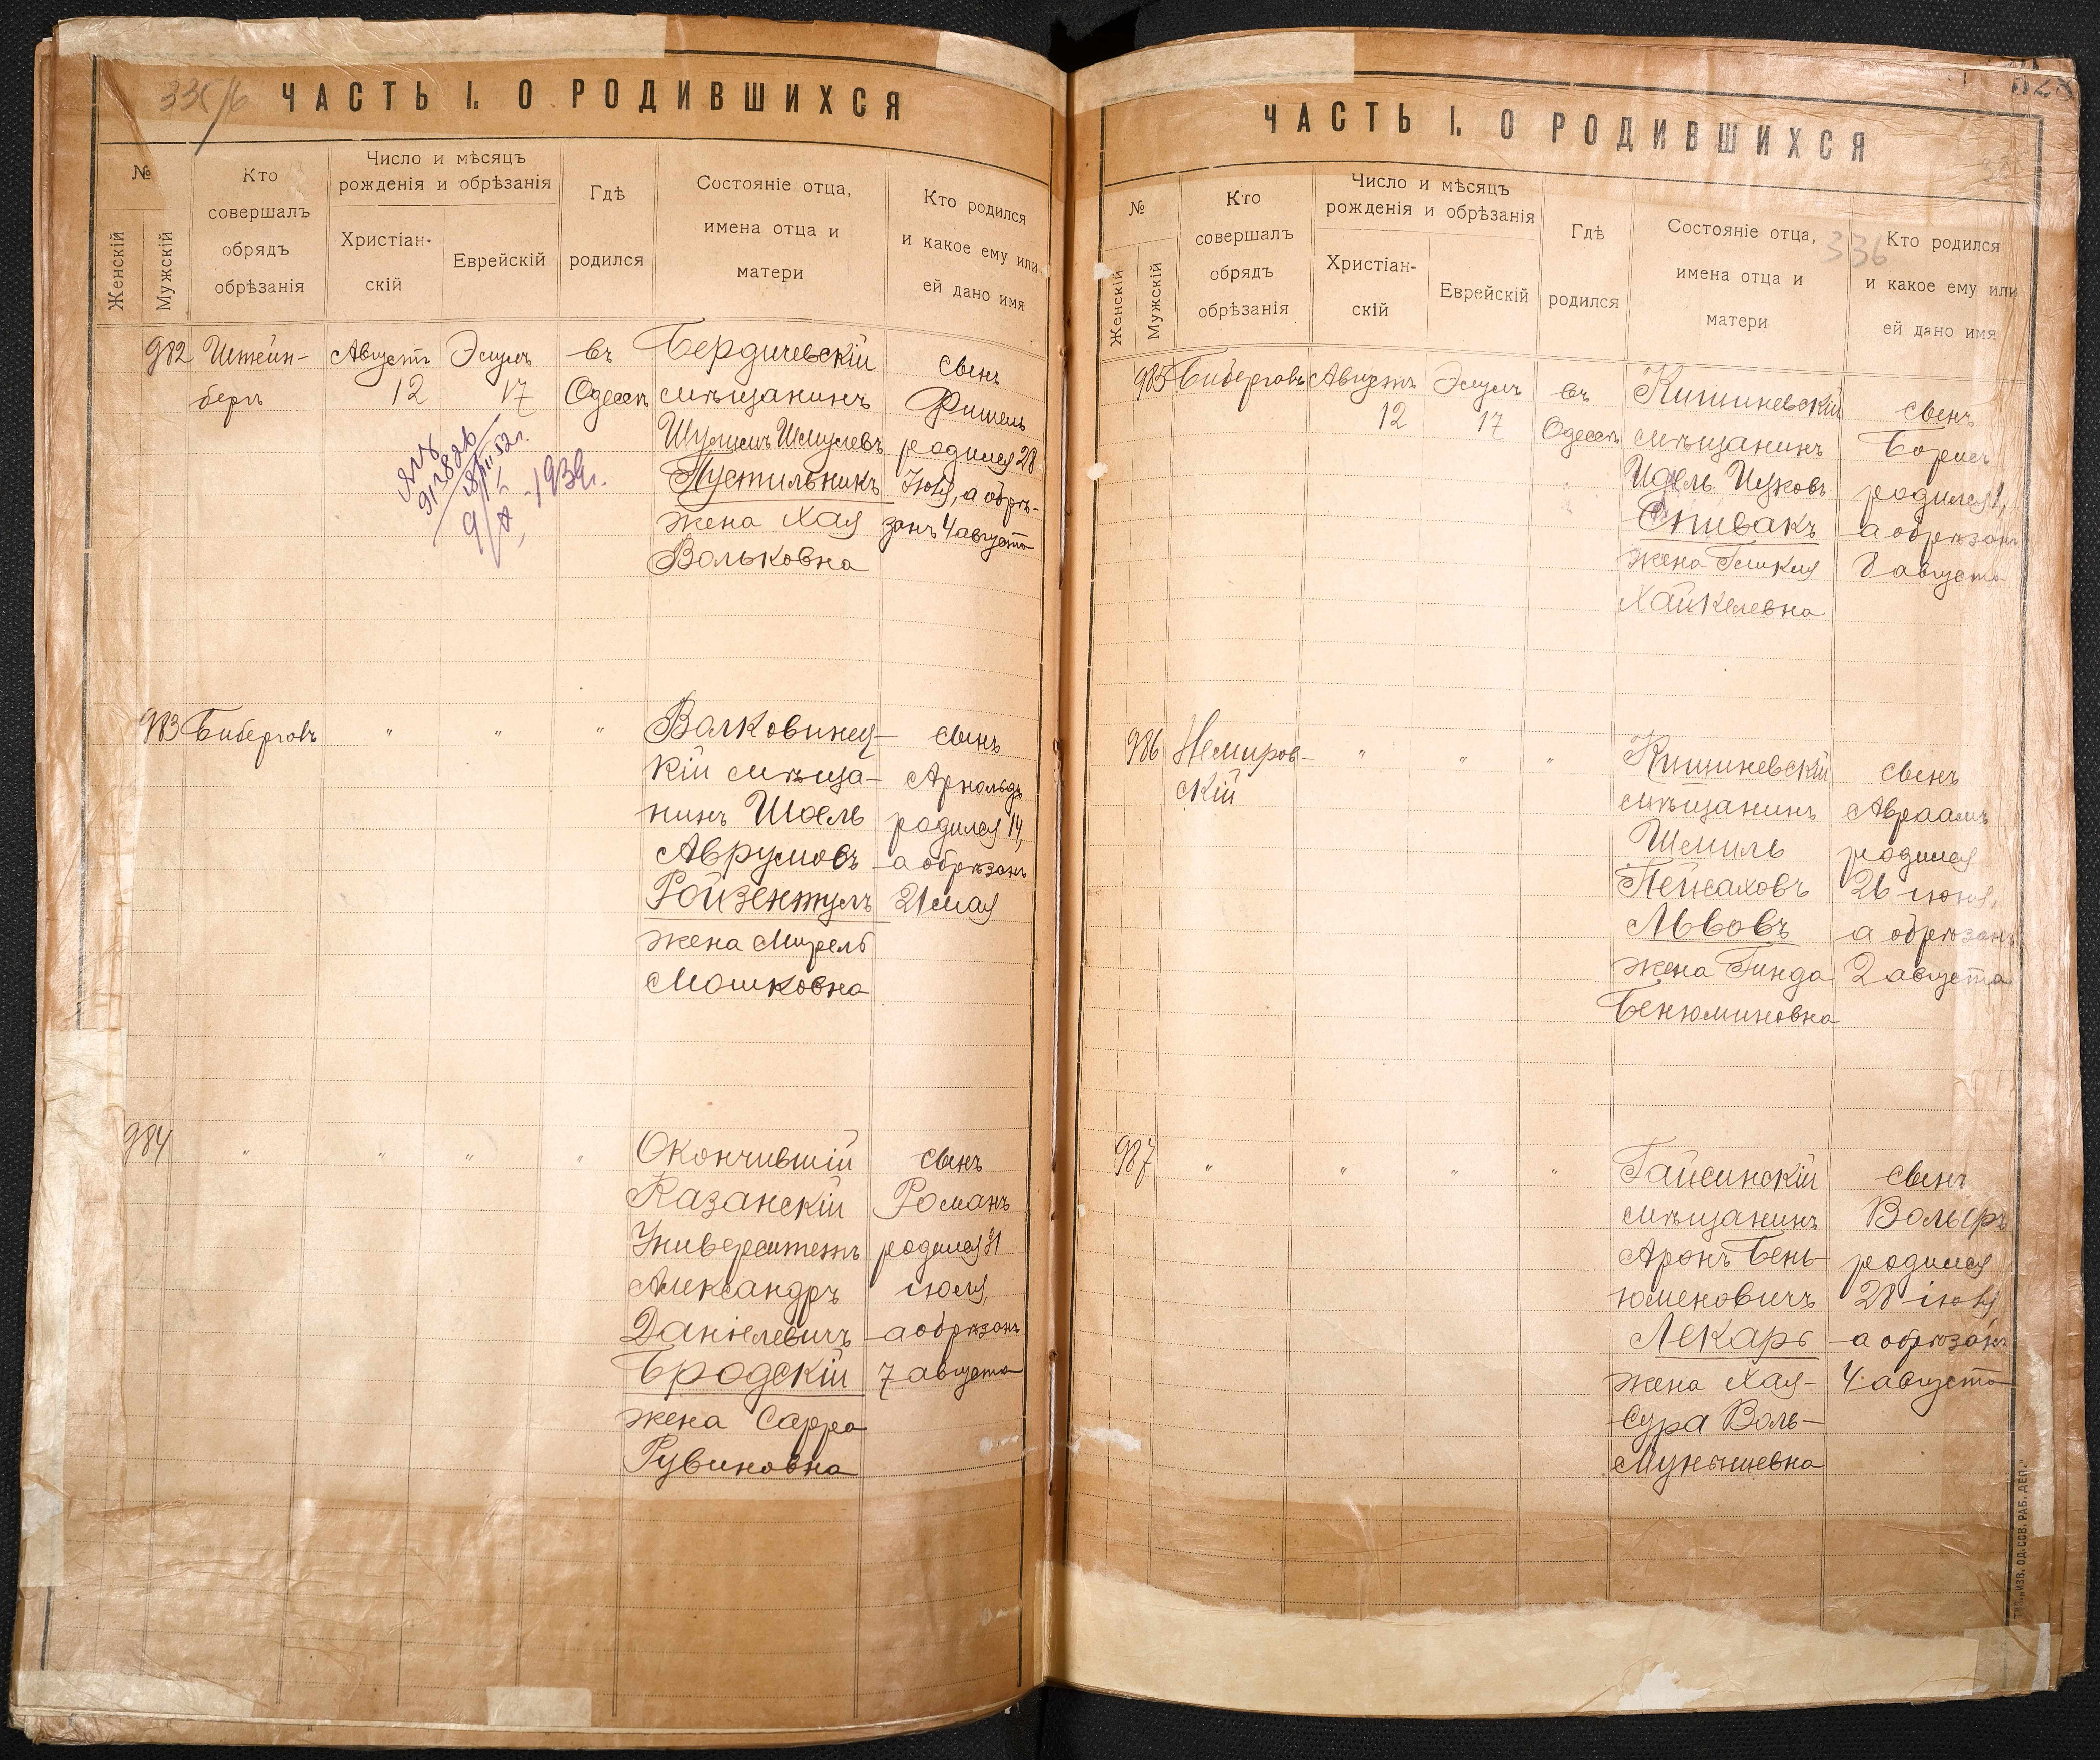 335/б
ЧАСТЬ I. О РОДИВШИХСЯ
№
Женскій
Мужскій
Кто
совершалъ
обрядъ
обрѣзанія
Число и мѣсяцъ
рожденія и обрѣзанія
Христіан-
скій
Еврейскій
Гдѣ
родился
Состояніе отца,
имена отца и
матери
Кто родился
и какое ему или
ей дано имя
982
Штейн-
бергъ
Августъ
12
Элулъ
17
въ
Одессѣ
Бердичевскій
мѣщанинъ
Шулимъ Шмулевъ
Пустильникъ
жена Хая
Вольковна
сынъ
Фишель
родился 28
Іюля, а обрѣ-
занъ 4 августа
1939г.
983
Биберговъ
"
"
"
Волковинец-
кій мѣща-
нинъ Шоель
Аврумовъ
Ройзентулъ
жена Мирель
Мошковна
сынъ
Арнольдъ
родился 14,
а обрѣзанъ
21 мая
984
"
"
"
"
Окончившій
Казанскій
Университетъ
Александръ
Даніелевичъ
Бродскій
жена Сарра
Рувиновна
сынъ
Романъ
родился 31
іюля,
а обрѣзанъ
7 августа
328
ЧАСТЬ I. О РОДИВШИХСЯ
336
№
Женскій
Мужскій
Кто
совершалъ
обрядъ
обрѣзанія
Число и мѣсяцъ
рожденія и обрѣзанія
Христіан-
скій
Еврейскій
Гдѣ
родился
Состояніе отца,
имена отца и
матери
Кто родился
и какое ему или
ей дано имя
985
Биберговъ
Августъ
12
Элулъ
17
въ
Одессѣ
Кишиневскій
мѣщанинъ
Идель Ицковъ
Спивакъ
жена
Хайкелевна
сынъ
Борисъ
родился 1,
а обрѣзанъ
8 августа
986
Немиров-
скій
"
"
"
Кишиневскій
мѣщанинъ
Шмиль
Пейсаховъ
Львовъ
жена Гинда
Бенюминовна
сынъ
Авраамъ
родился
26 іюля,
а обрѣзанъ
2 августа
987
"
"
"
"
Гайсинскій
мѣщанинъ
Аронъ Бень-
юменовичъ
Лекарь
жена Хая-
Сура Воль-
Мунышевна
сынъ
Вольфъ
родился
28 іюля,
а обрѣзанъ
4 августа
ТИП. „ИЗВ. ОД. СОВ. РАБ. ДЕП."